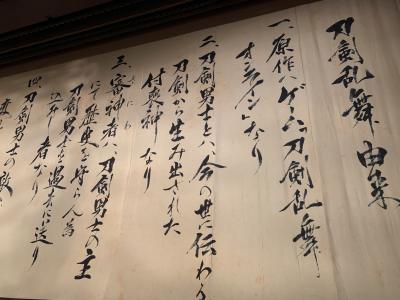 刀剣乱舞 由来
一、原作ハゲーム「刀剣乱舞
オンライン」なり
二、刀剣男士とハ、今の世に伝わる
刀剣から生み出された
付喪神 なり
三、審神者ハ、刀剣男士の主
さにわ
にて歴史を守らん為
刀剣男士を過去に送り
込みし者なり
四、刀剣男士の敵